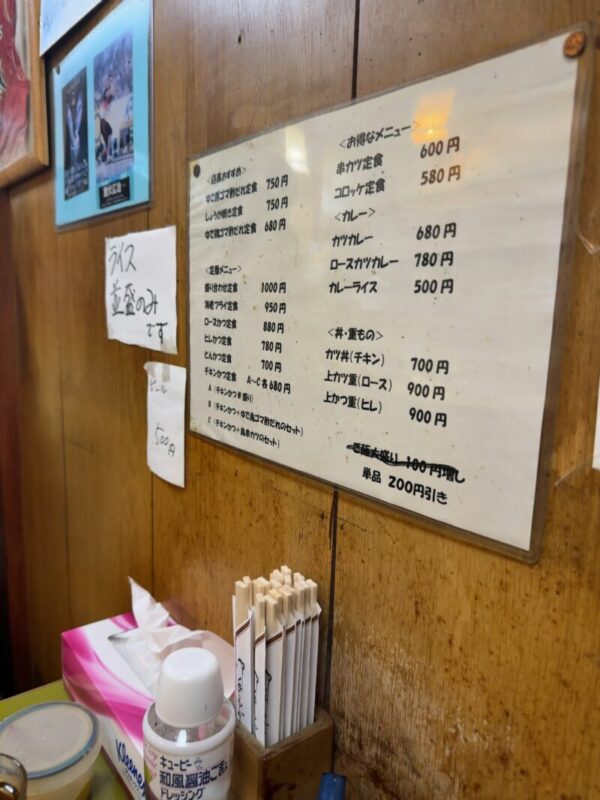 <店長おすすめ>
ゆで鶏ゴマ酢だれ定食 750円
しょうが焼き定食 750円
ゆで鶏ゴマ酢だれ定食 680円
<定番メニュー>
盛り合わせ定食 1000円
海老フライ定食 950円
ロースかつ定食 880円
ヒレかつ定食 780円
とんかつ定食 700円
チキンかつ定食 A〜C 各680円
A (チキンかつ 盛り)
B (チキンかつ+ゆで鶏ゴマ酢だれのセット)
C (チキンかつ+鳥串カツのセット)
<お得なメニュー>
串カツ定食 600円
コロッケ定食 580円
<カレー>
カツカレー 680円
ロースカツカレー 780円
カレーライス 500円
<丼・重もの>
カツ丼(チキン) 700円
上カツ重(ロース) 900円
上かつ重(ヒレ) 900円
ご飯大盛り 100円増し
単品 200円引き
ライス
並盛のみ
です
ビール
500円
Kleenex
キユーピー
和風醤油ごま入
ドレッシング